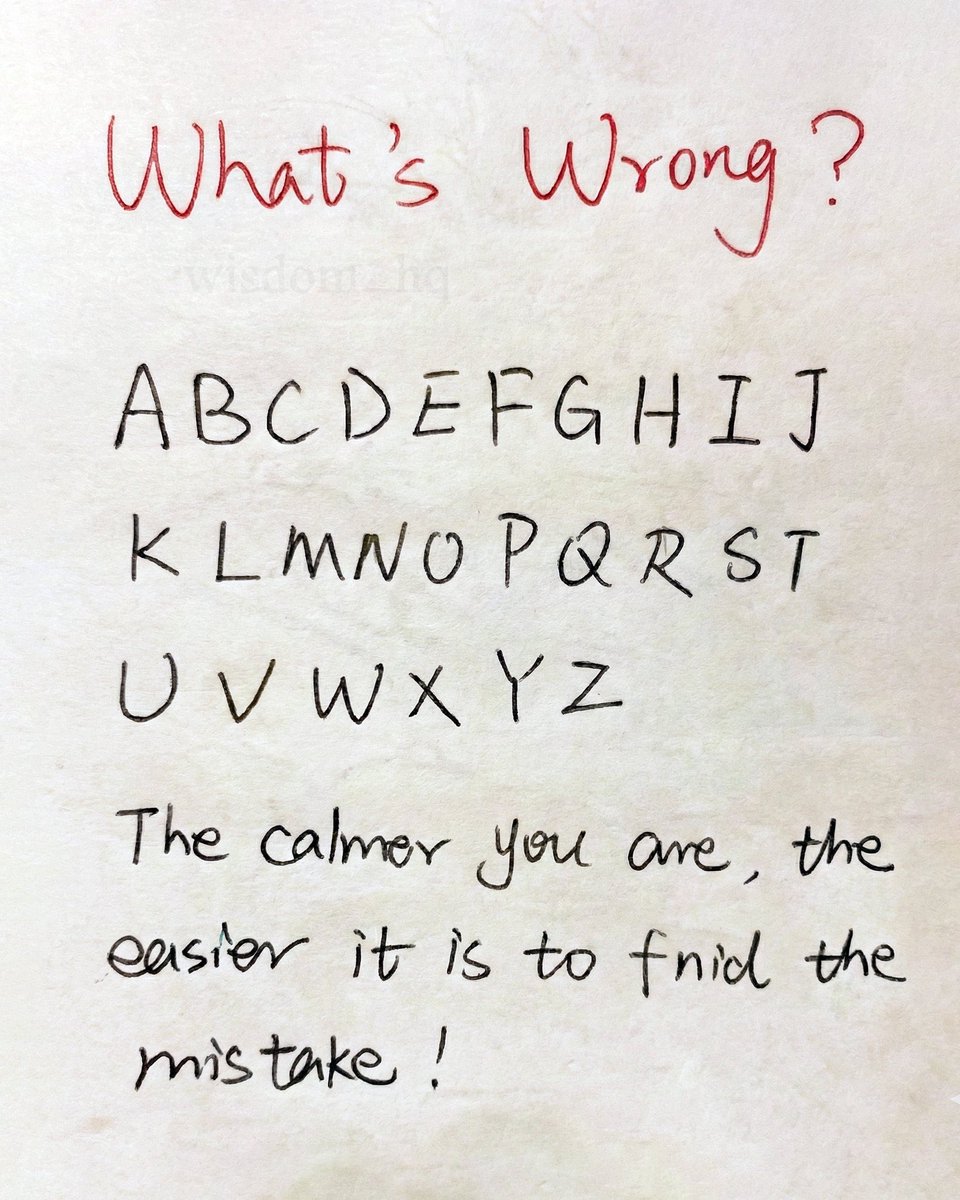 What's Wrong?
wisdom_hq
A B C D E F G H I J
K L M N O P Q R S T
U V W X Y Z
The calmer you are, the
easier it is to fnid the
mistake!